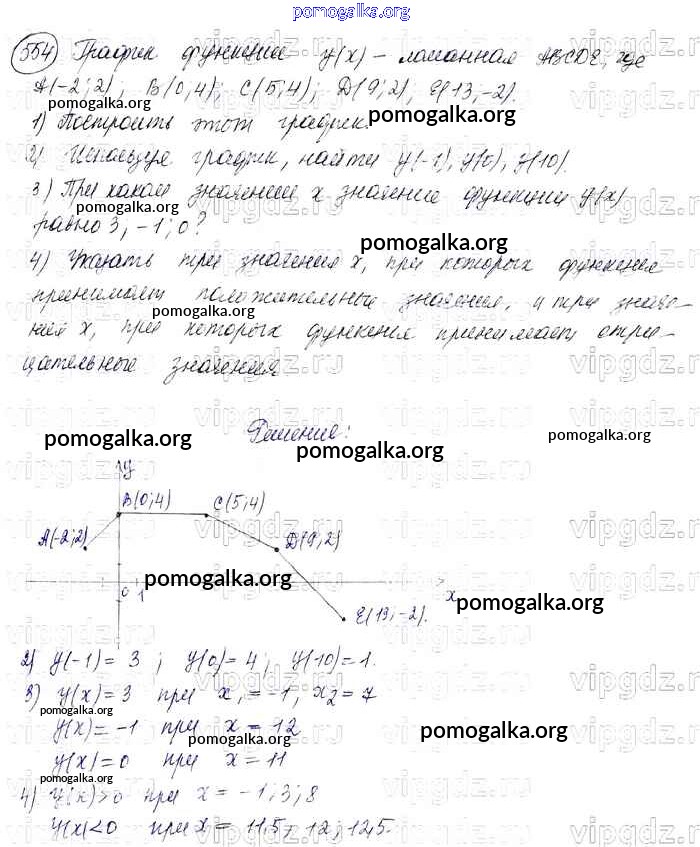 pomogalka.org
554) График функции y(x) – ломанная ABCDE, где
A(-2;2), B(0;4); C(5;4); D(9;2), E(13,-2).
pomogalka.org
pomogalka.org
1) Построить этот график.
2) Используя график, найти y(-1), y(0), y(10).
3) При каком значении x значение функции y(x)
pomogalka.org
равно 3, -1; 0?
pomogalka.org
4) Указать три значения x, при которых функция
принимает положительные значения, и три значе-
pomogalka.org
ния x, при которых функция принимает отри-
цательные значения
Решение:
pomogalka.org
pomogalka.org
pomogalka.org
y
B(0;4) C(5;4)
A(-2;2) D(9;2)
pomogalka.org
0 1 x
pomogalka.org
E(13;-2).
2) y(-1) = 3; y(0) = 4; y(10) = 1.
3) y(x) = 3 при x₁ = -1, x₂ = 7
pomogalka.org
y(x) = -1 при x = 12
pomogalka.org
pomogalka.org
y(x) = 0 при x = 11
pomogalka.org
4) y(x) > 0 при x = -1; 3; 8
y(x) < 0 при x = 11,5; 12; 12,5.
vipgdz.ru